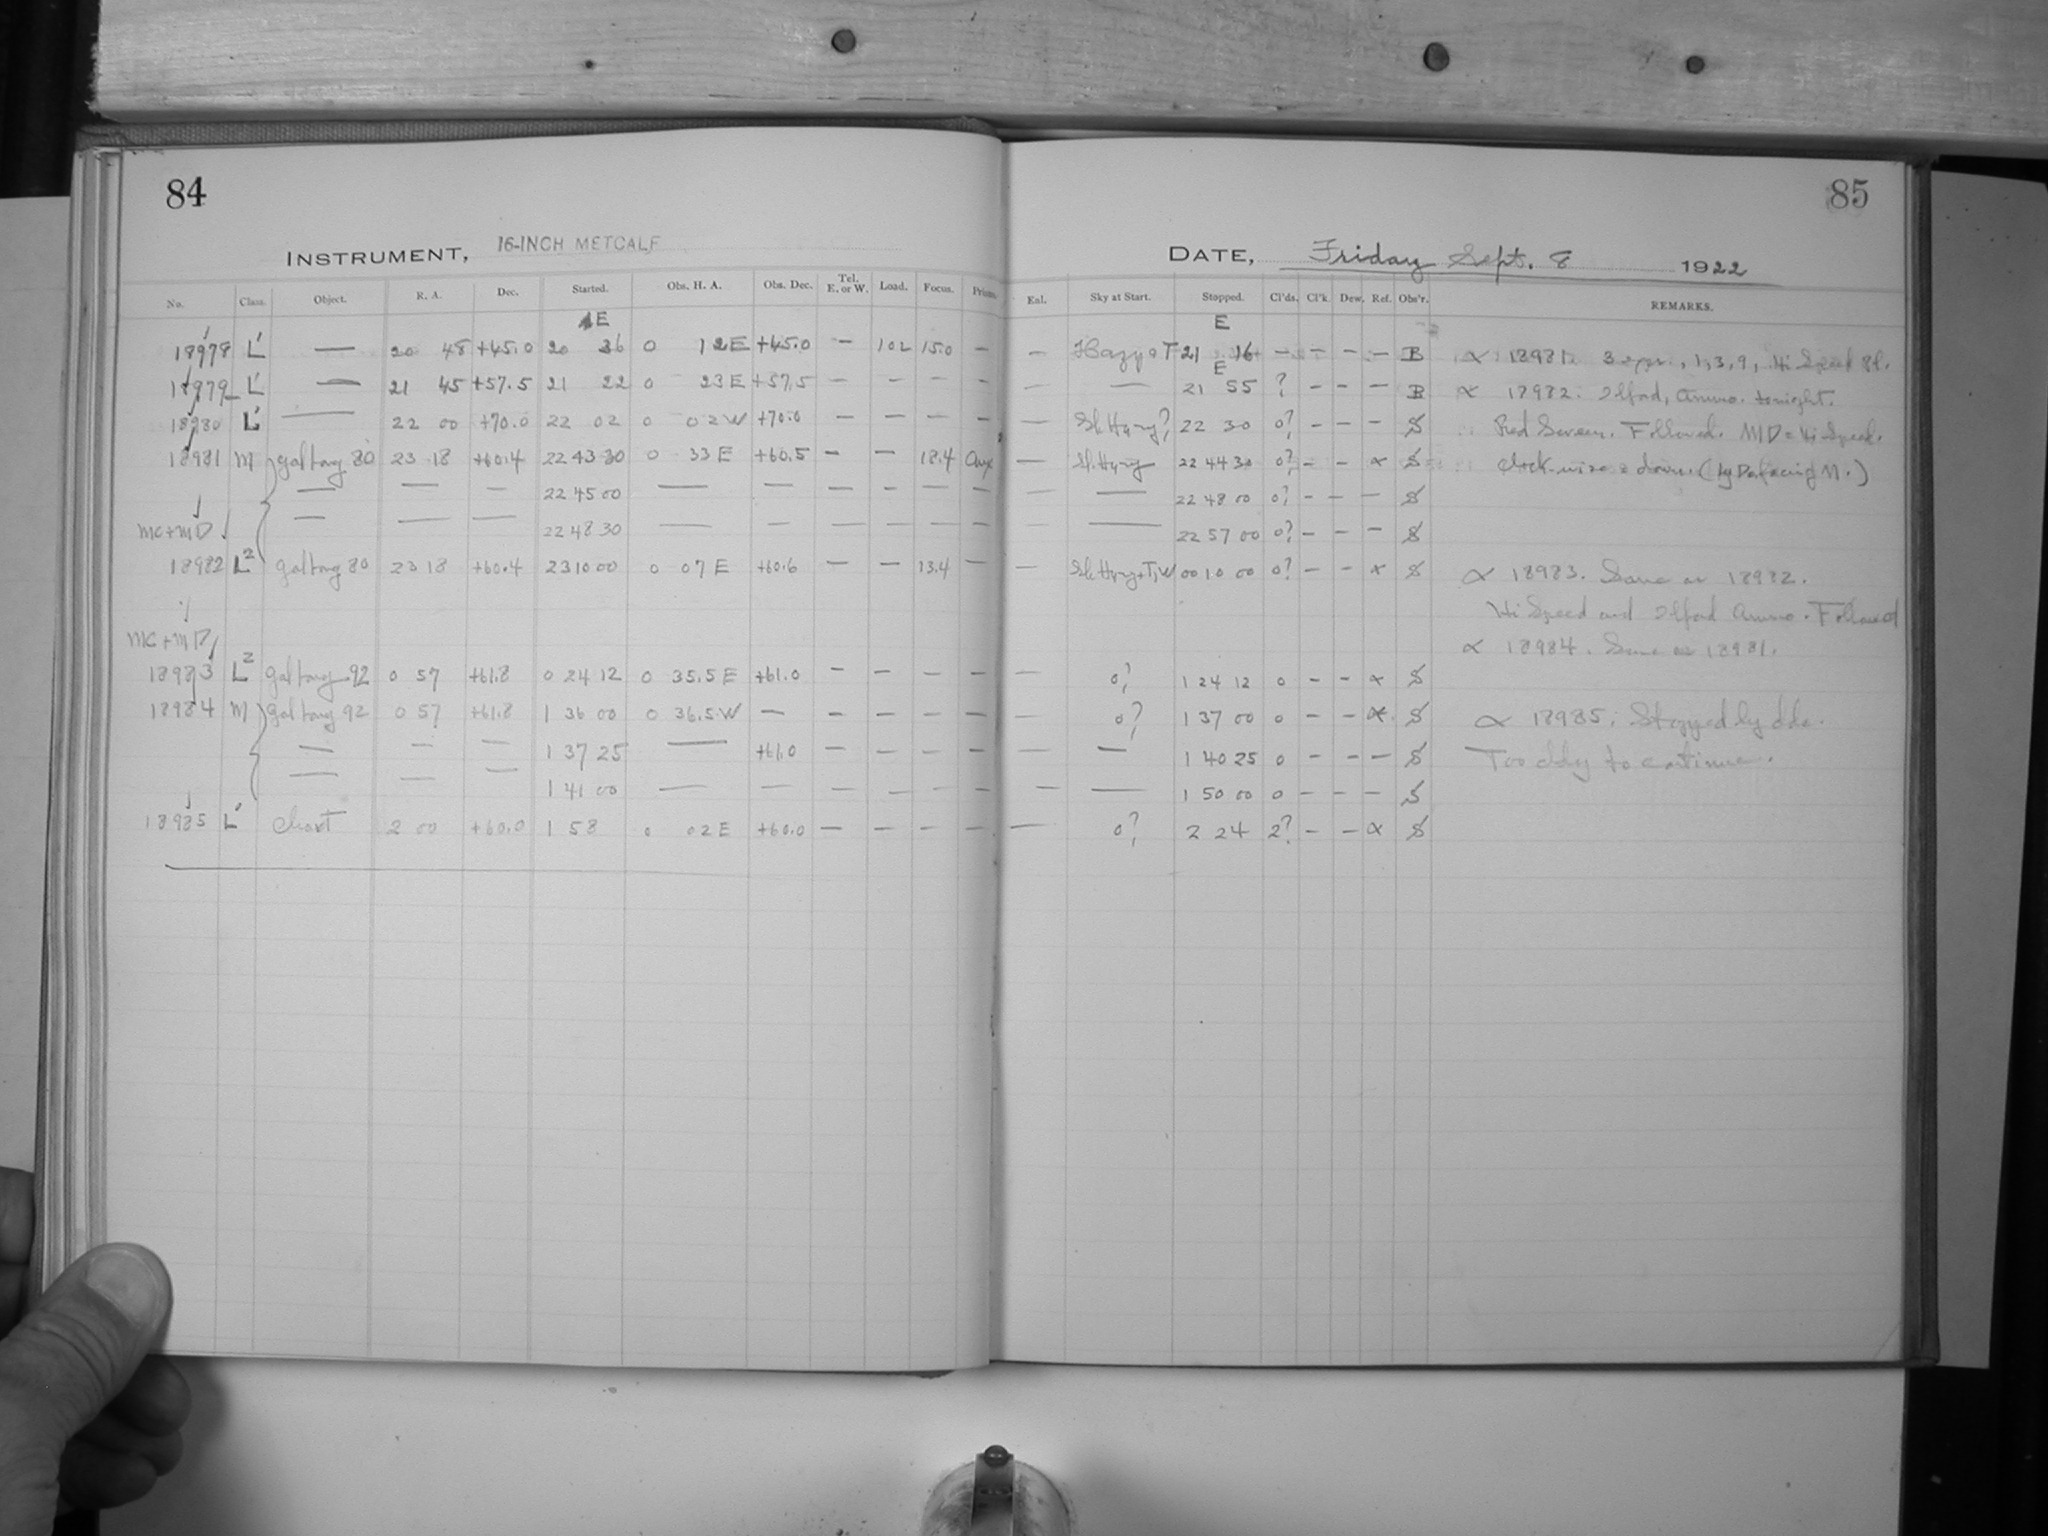 84
85
INSTRUMENT, 16-INCH METCALF
DATE, Friday Sept. 8 1922
No. Class. Object. R. A. Dec. Started. Obs. H. A. Obs. Dec. Tel. E. or W. Load. Focus. Enl. Sky at Start. Stopped. Cl'ds. Cl'k. Dew. Ref. Obs'r. REMARKS.
E E
18978 L' — 20 48 +45.0 20 36 0 12 E +45.0 — 102 15.0 — — 21 16 — — — — B ∝ 18981. 3 , 1, 3, 9, Hi Speed
E
18979 L' — 21 45 +57.5 21 22 0 23 E +57.5 — — — — — — 21 55 ? — — — B ∝ 18982. Ilford, Ammo. tonight.
18980 L' — 22 00 +70.0 22 02 0 02 W +70.0 — — — — — 22 30 0? — — — S Red Screen. Followed. MD = Hi Speed.
18981 M Gal Long 80 23 18 +60.4 22 43 30 0 33 E +60.5 — — 18.4 — 22 44 30 0? — — ∝ S Clock-wise = down.
— — — 22 45 00 — — — — — — — — 22 48 00 0? — — — S
MC+MD — — — 22 48 30 — — — — — — — 22 57 00 0? — — — S
18982 L2 Gal Long 80 23 18 +60.4 23 10 00 0 07 E +60.6 — — 13.4 — — 00 10 00 0? — — ∝ S ∝ 18983. Same as 18982.
Hi Speed and Ilford Ammo. Followed
MC+MD ∝ 18984. Same as 18981.
18983 L2 Gal Long 92 0 57 +61.8 0 24 12 0 35.5 E +61.0 — — — — — 0? 1 24 12 0 — — ∝ S
18984 M Gal Long 92 0 57 +61.8 1 36 00 0 36.5 W — — — — — — 0? 1 37 00 0 — — ∝ S ∝ 18985. Stopped by clds.
— — — 1 37 25 — +61.0 — — — — — — 1 40 25 0 — — — S Too cldy to continue.
— — — 1 41 00 — — — — — — — — 1 50 00 0 — — — S
18985 L' Chart 2 00 +60.0 1 58 0 02 E +60.0 — — — — — 0? 2 24 2? — — ∝ S